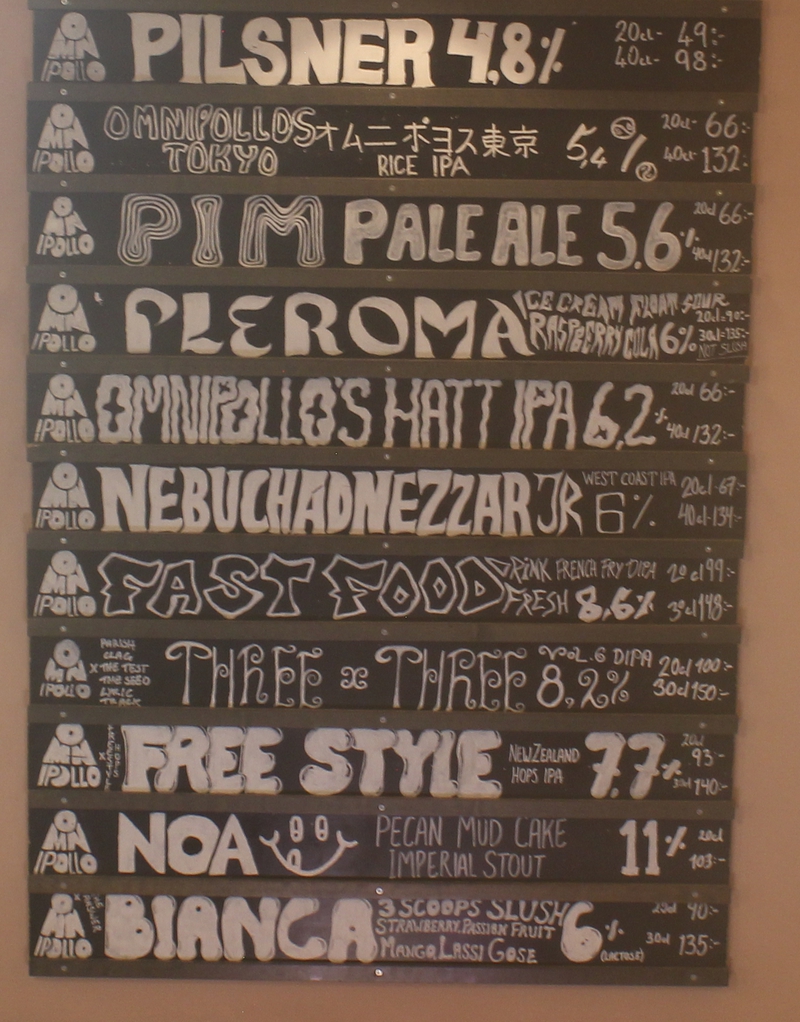 OMNIPOLLO PILSNER 4,8% 20cl- 49:-
40cl- 98:-
OMNIPOLLO OMNIPOLLOS オムニポヨス東京 5,4% 20cl- 66:-
TOKYO RICE IPA 40cl- 132:-
OMNIPOLLO PIM PALE ALE 5.6% 20cl 66:-
40cl 132:-
OMNIPOLLO PLEROMA ICE CREAM FLOAT SOUR
RASPBERRY COLA 6% 20cl-90:-
30cl-135:-
NOT SLUSH
OMNIPOLLO OMNIPOLLO'S HATT IPA 6,2% 20cl 66:-
40cl 132:-
OMNIPOLLO NEBUCHADNEZZAR JR WEST COAST IPA 6% 20cl-67:-
40cl-134:-
OMNIPOLLO FAST FOOD DRINK FRENCH FRY DIPA 20cl 99:-
FRESH 8,6% 30cl 148:-
OMNIPOLLO THREE x THREE VOL.6 DIPA 20cl 100:-
8,2% 30cl 150:-
OMNIPOLLO FREE STYLE NEW ZEALAND 7.7% 20cl 93:-
HOPS IPA 30cl 140:-
OMNIPOLLO NOA PECAN MUD CAKE 11% 20cl
IMPERIAL STOUT 103:-
OMNIPOLLO BIANCA 3 SCOOPS SLUSH 6% 20cl 90:-
STRAWBERRY, PASSION FRUIT
MANGO LASSI GOSE (LACTOSE) 30cl 135:-